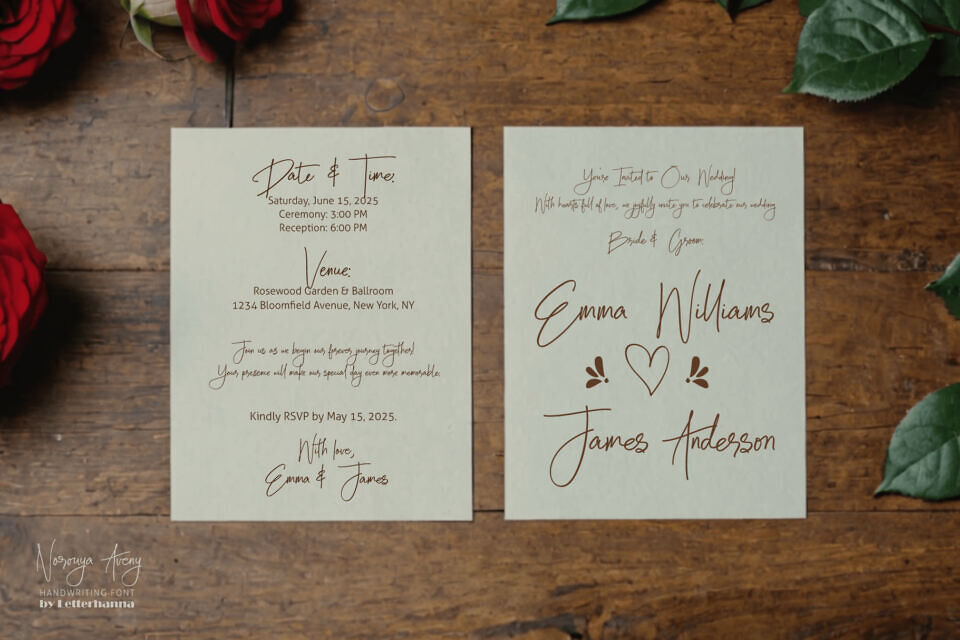 Date & Time:
Saturday, June 15, 2025
Ceremony: 3:00 PM
Reception: 6:00 PM
Venue:
Rosewood Garden & Ballroom
1234 Bloomfield Avenue, New York, NY
Join us as we begin our forever journey together!
Your presence will make our special day even more memorable.
Kindly RSVP by May 15, 2025.
With love,
Emma & James
You're Invited to Our Wedding!
With hearts full of love, we joyfully invite you to celebrate our wedding
Bride & Groom:
Emma Williams
James Anderson
Nosouya Aveny
HANDWRITING FONT
by Letterhanna